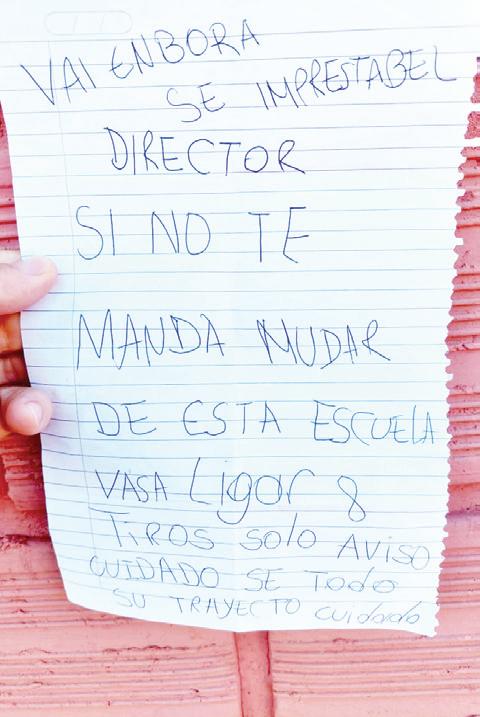 VAI ENBORA
SE IMPRESTABEL
DIRECTOR
SI NO TE
MANDA MUDAR
DE ESTA ESCUELA
VASA Ligor 8
TIROS SOLO AVISO
CUIDADO SE TODO
SU TRAYECTO cuidado